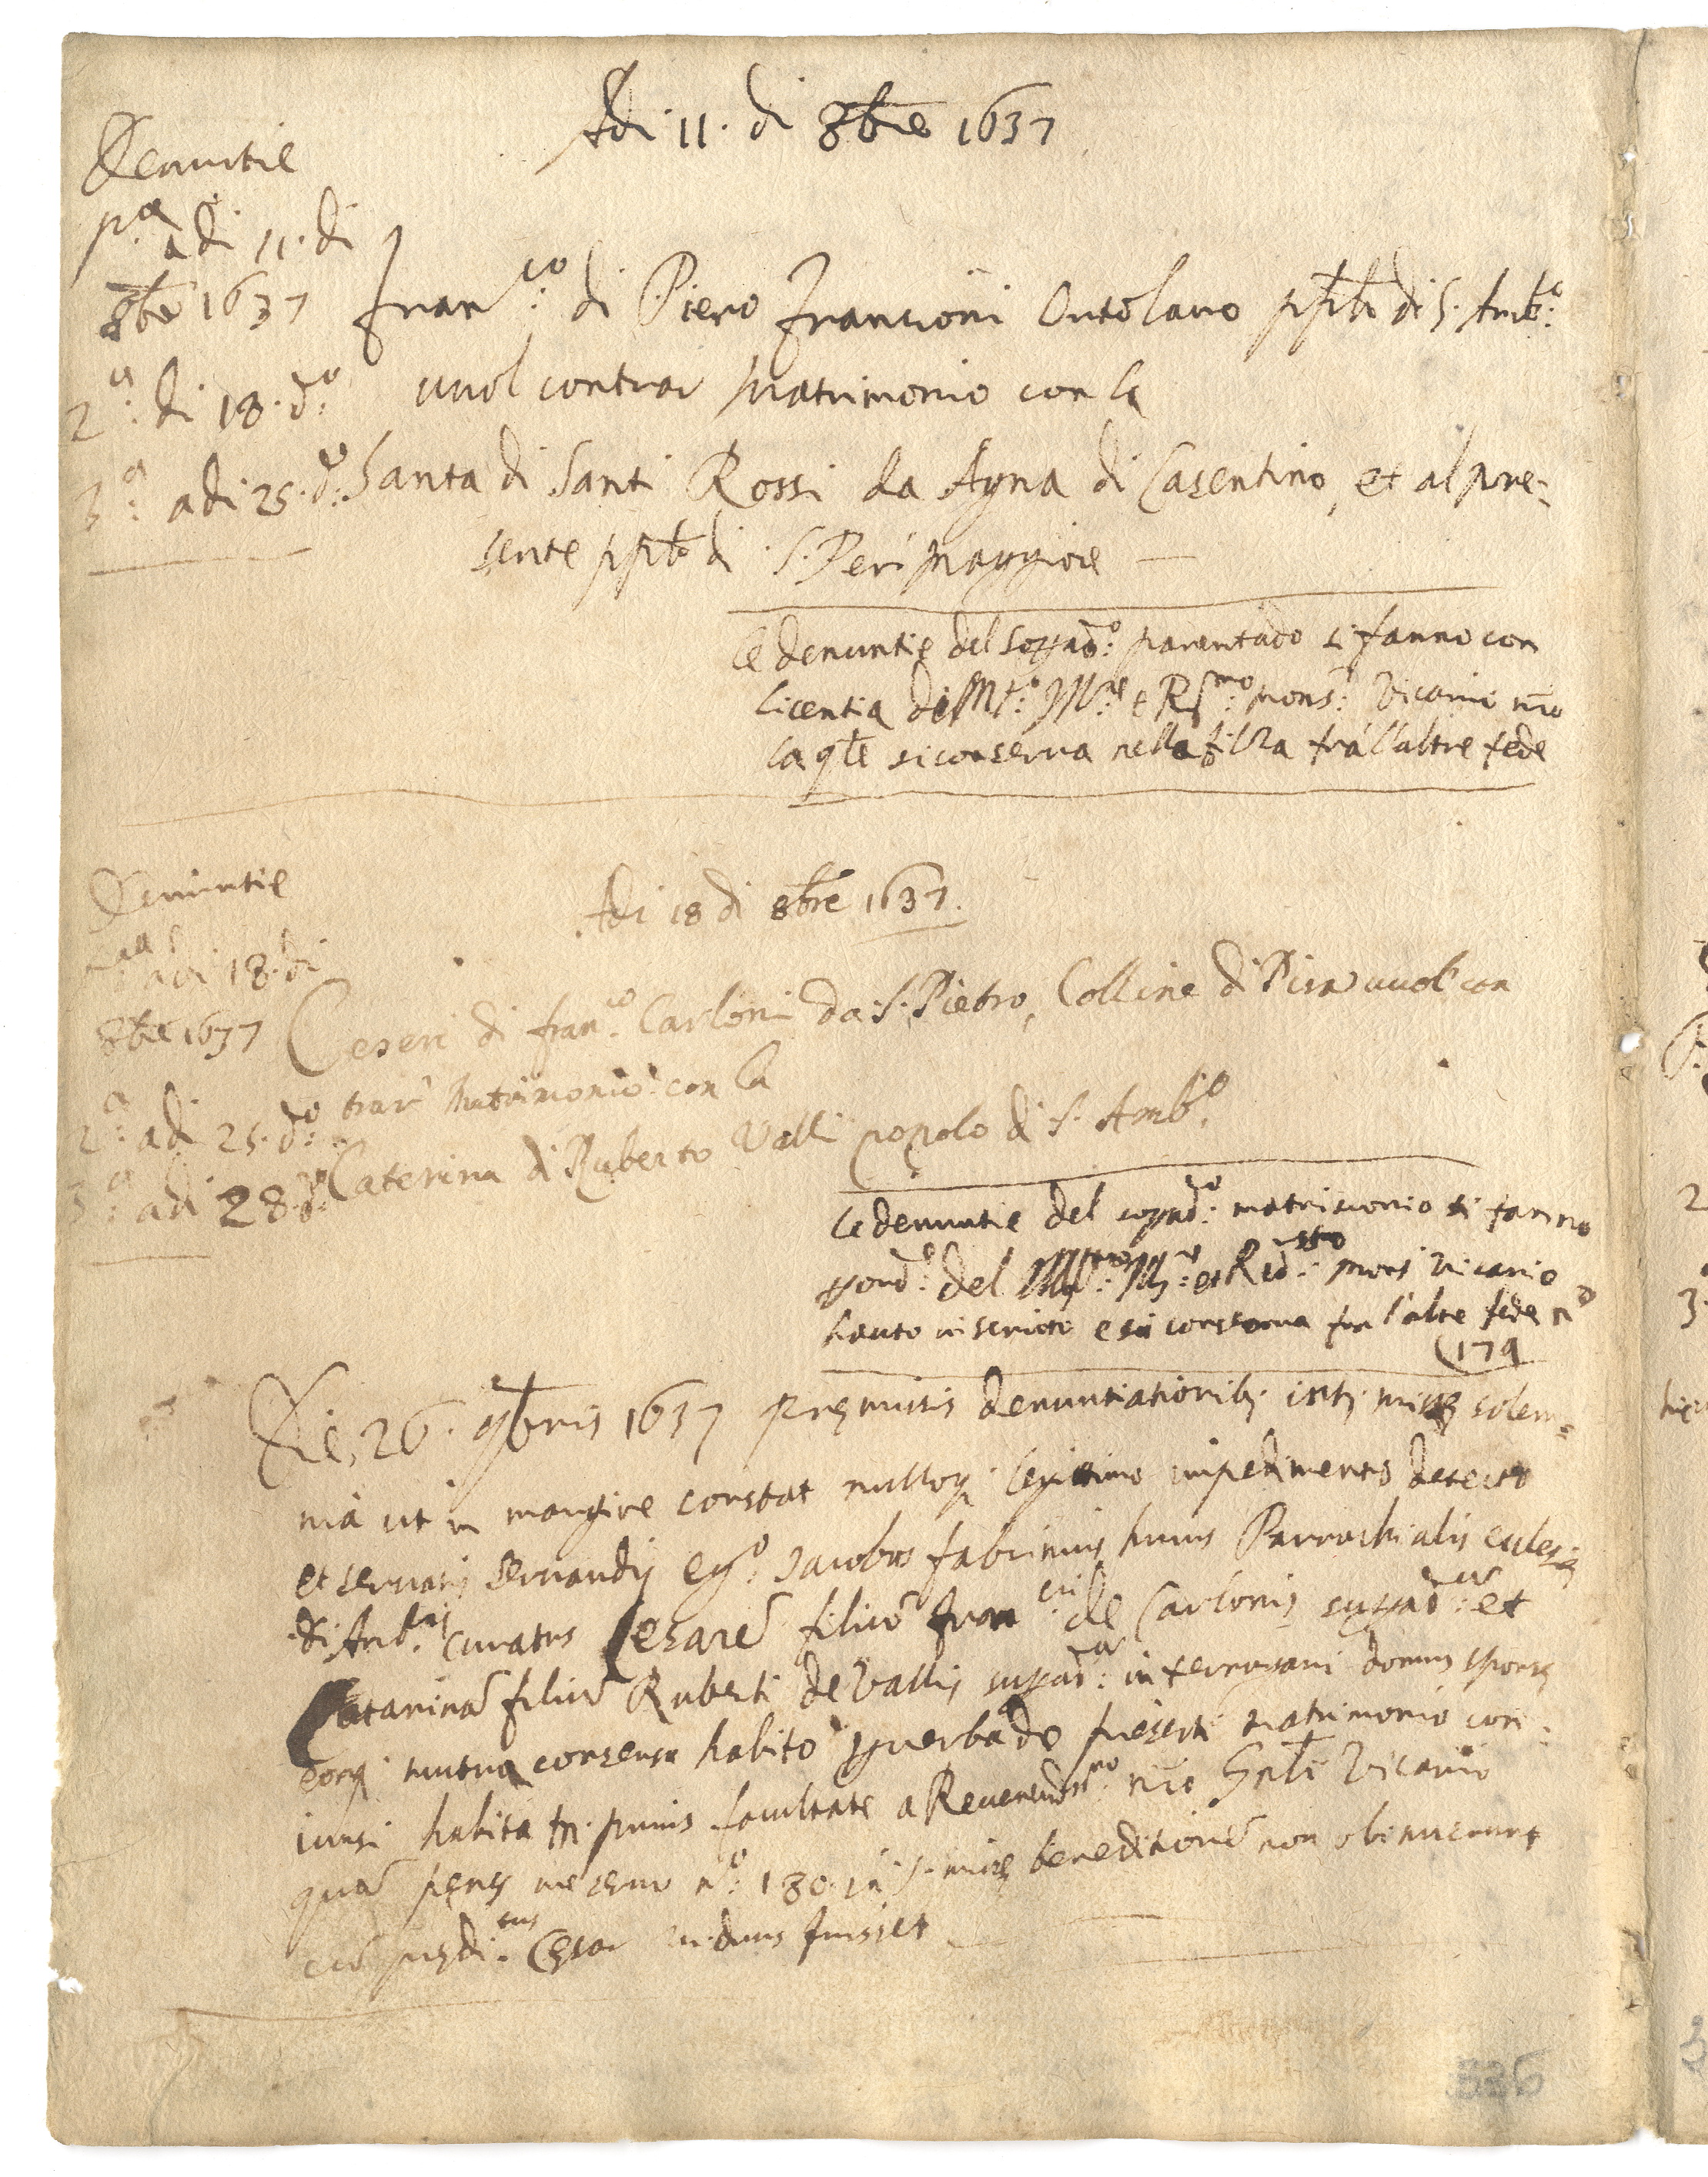 Adi 11. di 8bre 1637
Denuntie
p.a adi 11. di
8bre 1637
2.a di 18. do.
3.a adi 25. do.
Fran.co di Piero Francioni Ortolano pplo di S. Amb.o
vuol contrar Matrimonio con la
Santa di Santi Rossi da Agna di Casentino, et al pre-
sente pplo di S. Pier Maggiore
Le denuntie del soppado. parentado si fanno con
licentia di Mto. Ill.re e R.mo Mons. Vicario nro
la qle si conserva nella filza fra l'altre fede
Denuntie
adi 18. di
8bre 1637
2.a adi 25. do.
3.a adi 28. do.
Adi 18 di 8bre 1637.
Ceseri di Fran.co Carloni da S. Pietro, Colline di Pisa vuol con
trar Matrimonio con la
Caterina di Ruberto Valli popolo di S. Amb.o
Le denuntie del soppado. matrimonio si fanno
del et Mons Vicario
hauto in scritto e si conserva fra l'altre fede no
179
Die, 26. 9bris 1637 premissis denuntiationib. inter missar solem=
nia ut in margine constat nulloq. legitimo impedimento detecto
et servatis servandis ego. Jacobus Fabrinius huius Parrochialis eclesie
S. Amb.sii curatus Cesare filiu Fran.ci de Carlonis suprad. et
Catarina filia Ruberti de Vallis suprad. interrogavi domus sponse
eorq. mutuo consensu habito p verba de presenti matrimonio con-
iunsi habita in primis facultate a Reverendis.mo nro Gnli Vicario
qua penes me servo no. 180. in S. misse beneditione non obtinuerunt
cu predi.tus Cesar viduus fuisset
336